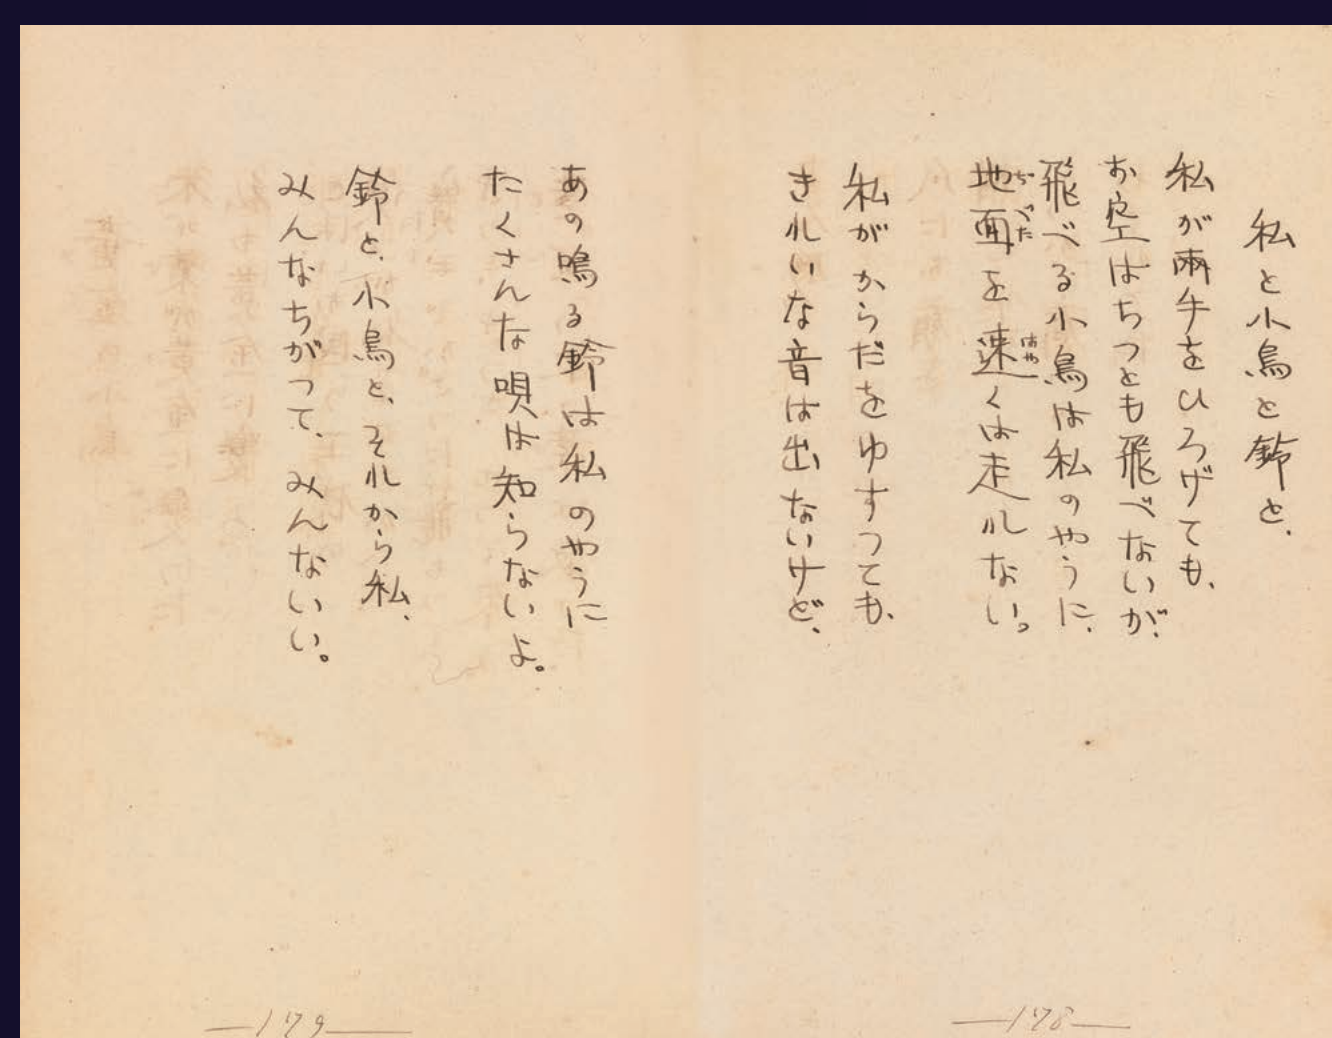 私と小鳥と鈴と、
私が兩手をひろげても、
お空はちつとも飛べないが、
飛べる小鳥は私のやうに、
地面を速くは走れない。
ぢべた
はや
私がからだをゆすつても、
きれいな音は出ないけど、
178
あの鳴る鈴は私のやうに
たくさんな唄は知らないよ。
鈴と、小鳥と、それから私、
みんなちがつて、みんないい。
179